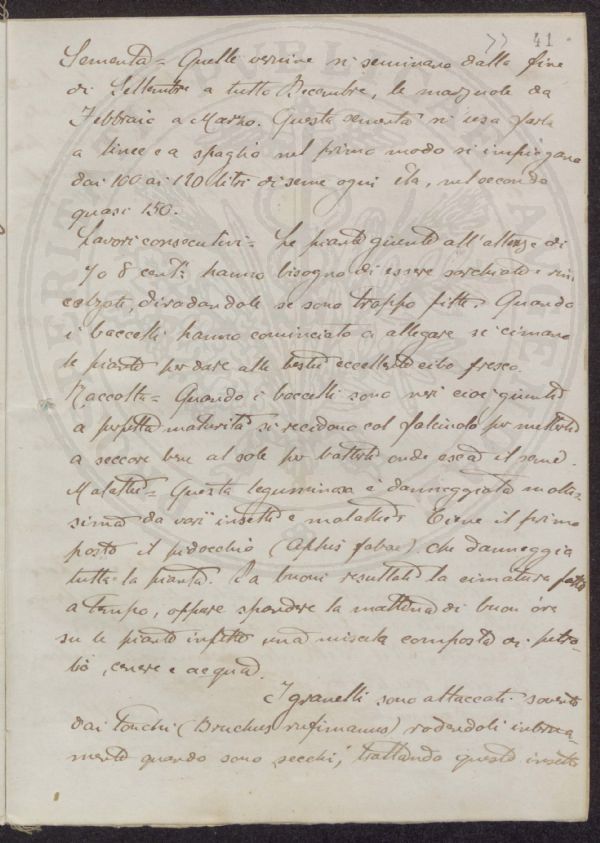 77 41
Sementa = Quelle vernine si seminano dalla fine
di Settembre a tutto Decembre, le marzuole da
Febbraio a Marzo. Questa sementa si usa farla
a linee e a spaglio nel primo modo si impiegano
dai 100 ai 120 litri di seme ogni Eta, nel secondo
quasi 150.
Lavori consecutivi = Le piante giunte all'altezza di
7 o 8 centi: hanno bisogno di essere sarchiate e rin
calzate, diradandole se sono troppo fitte. Quando
i baccelli hanno cominciato a allegare si cimano
le piante per dare alle bestie eccellente cibo fresco.
Raccolta = Quando i baccelli sono neri cioè giunti
a perfetta maturità si recidono col falciolo per metterli
a seccare bene al sole per batterli onde escà il seme.
Malattie = Questa leguminosa è danneggiata moltis-
sima da varî insetti e malattie: Tiene il primo
posto il pidocchio (Aphis fabae) che danneggia
tutta la pianta. Da buoni resultati la cimatura fatta
a tempo, oppure spandere la mattina di buon'ora
su le piante infette una miscela composta di petro-
lio, cenere e acqua.
I granelli sono attaccati sovente
dai Tonchi (Bruchus rufimanus) rodendoli interna-
mente quando sono secchi, trattando questo insetto